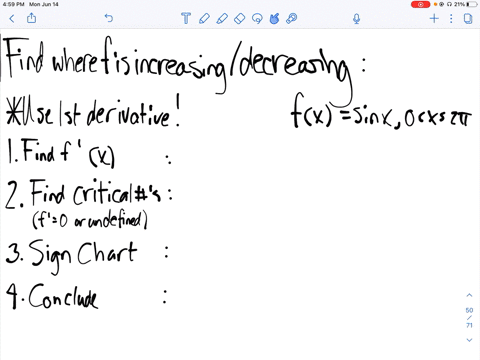 4:59 PM Mon Jun 14
21%
Find where f is increasing/decreasing :
*Use 1st derivative!
f(x) = sinx, 0<x≤2π
1. Find f'(x) :
2. Find Critical #'s :
(f'=0 or undefined)
3. Sign Chart :
4. Conclude :
50
/
71